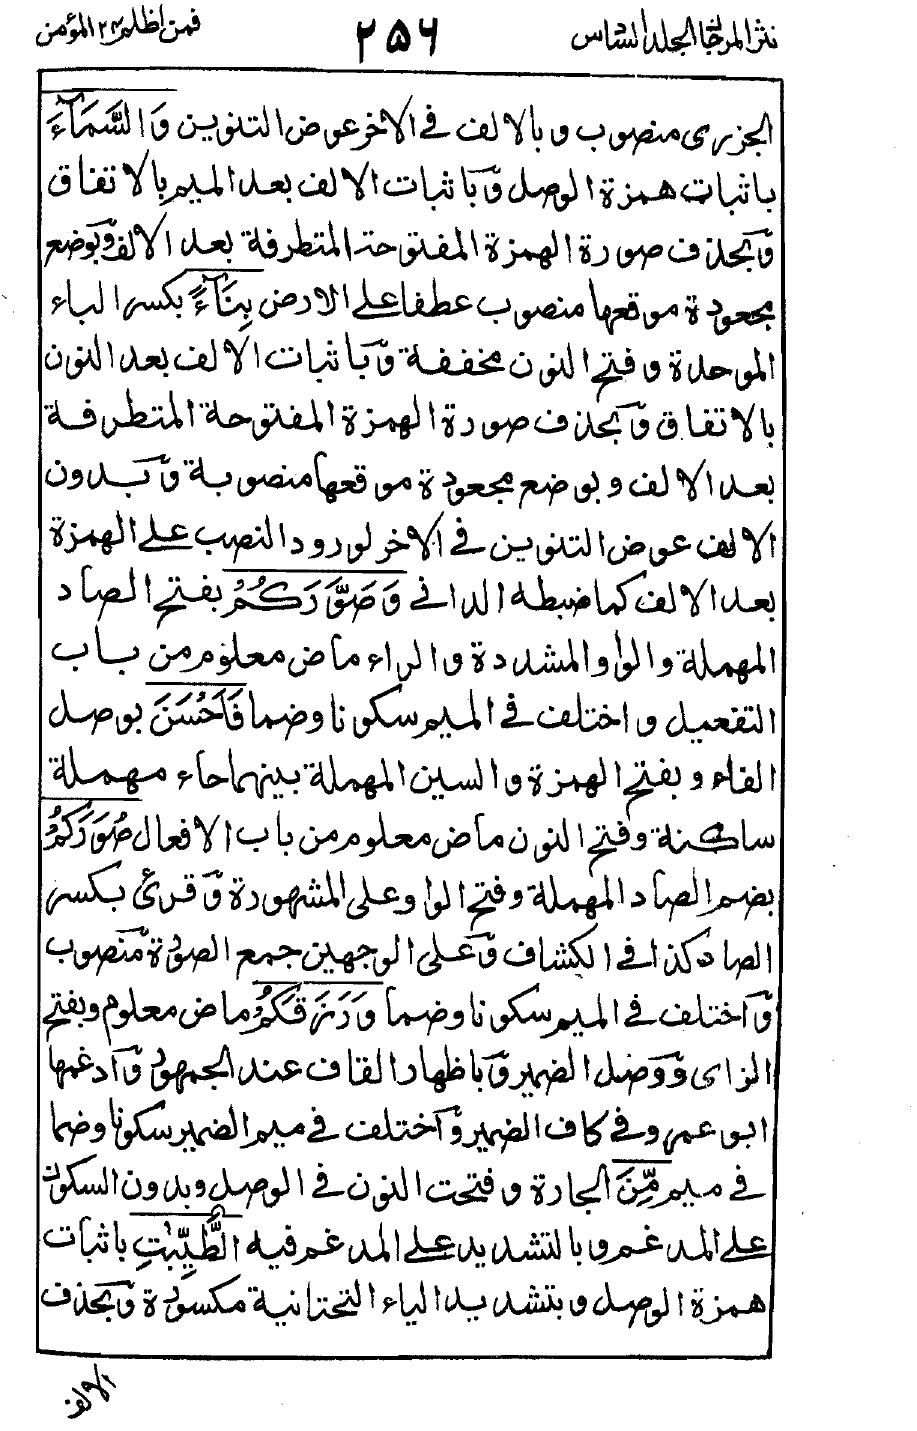 نثر المرجان الجلد السادس ٢٥٦ فمن اظلم ٢٤ المؤمن
الجزرى منصوب و بالالف فى الاخر عوض التنوين وَالسَّمَآءَ
باثبات همزة الوصل وَباثبات الالف بعد الميم بالاتفاق
وَبحذف صورة الهمزة المفتوحة المتطرفة بعد الالف وَبوضع
مجعودة موقعها منصوب عطفا على الارض بِنَآءً بكسر الباء
الموحدة و فتح النون مخففة وَباثبات الالف بعد النون
بالاتفاق وَبحذف صورة الهمزة المفتوحة المتطرفة
بعد الالف و بوضع مجعودة موقعها منصوبة وَبدون
الالف عوض التنوين فى الاخر لورود النصب على الهمزة
بعد الالف كما ضبطه الدانى وَصَوَّرَكُمْ بفتح الصاد
المهملة والواو المشددة والراء ماض معلوم من باب
التفعيل واختلف فى الميم سكونا وضما فَاَحْسَنَ بوصل
الفاء و بفتح الهمزة والسين المهملة بينهما حاء مهملة
ساكنة وفتح النون ماض معلوم من باب الافعال صُوَرَكُمْ
بضم الصاد المهملة وفتح الواو على المشهورة وَقرئ بكسر
الصاد كذا فى الكشاف وَعلى الوجهين جمع الصورة منصوب
وَاختلف فى الميم سكونا وضما وَرَزَقَكُمْ ماض معلوم وبفتح
الزاى وَوصل الضمير وَباظهار القاف عند الجمهور وَادغمها
ابو عمرو فى كاف الضمير وَاختلف فى ميم الضمير سكونا وضما
فى ميم مِّنَ الجارة وفتحت النون فى الوصل وبدون السكون
على المدغم وبالتشديد على المدغم فيه الطَّيِّبٰتِ باثبات
همزة الوصل وبتشديد الياء التحتانية مكسورة وَبحذف
الالف